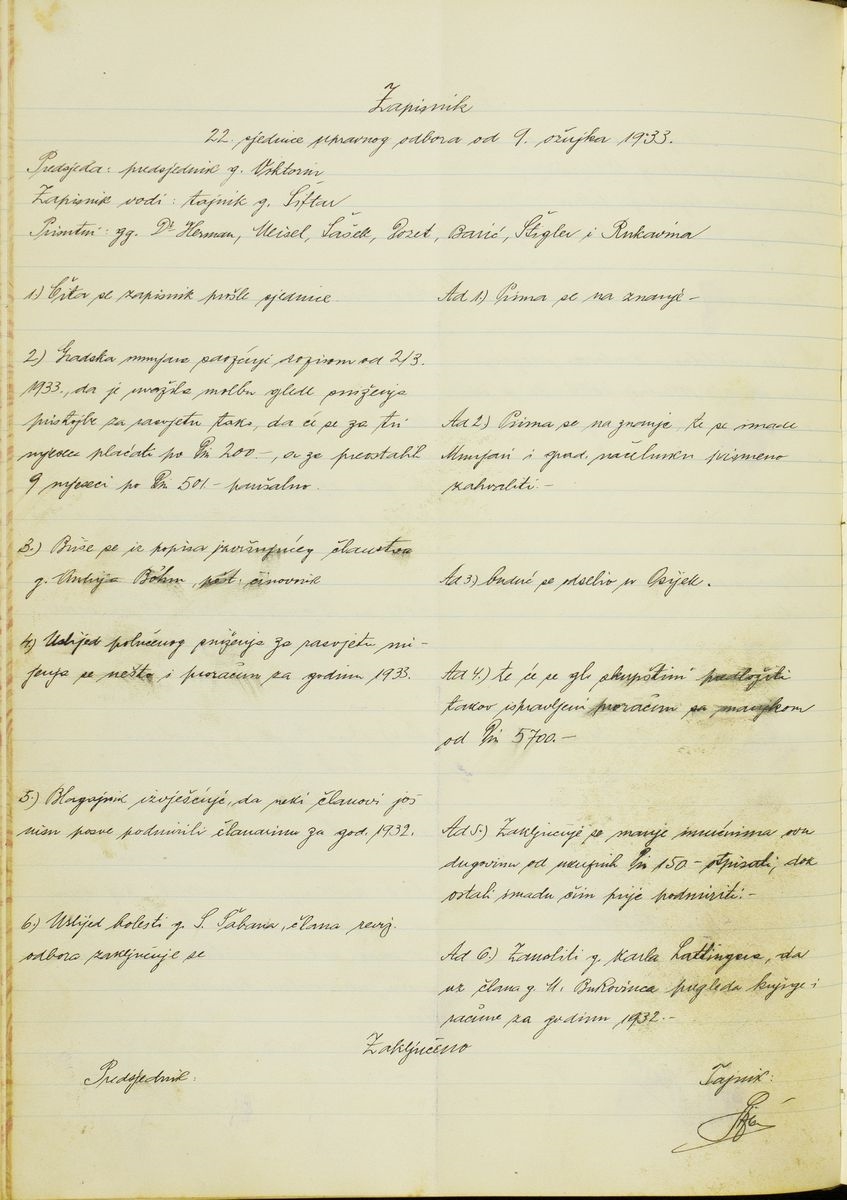 Zapisnik
22. sjednice upravnog odbora od 9. ožujka 1933.
Predsjeda: predsjednik g. Viktorin
Zapisnik vodi: tajnik g. Šiftar
Prisutni: gg. Dr Herman, Meisel, Šašek, Dozet, Barić, Štigler i Rukavina
1.) Čita se zapisnik prošle sjednice.
Ad 1.) Prima se na znanje –
2.) Gradska munjara saopćuje dopisom od 2/3.
1933., da je uvažila molbu glede sniženja
pristojbe za rasvjetu tako, da će se za tri
mjeseca plaćati po Din 200.–, a za preostalih
9 mjeseci po Din 501.– paušalno.
Ad 2.) Prima se na znanje, te se imade
Munjari i grad. načelniku pismeno
zahvaliti. –
3.) Briše se iz popisa izvršujućeg članstva
g. Andrija Böhm, pošt. činovnik
Ad 3.) budući se odselio u Osijek.
4.) Uslijed polučenog sniženja za rasvjetu mi-
jenja se nešto i proračun za godinu 1933.
Ad 4.) te će se gl. skupštini predložiti
takov ispravljeni proračun sa manjkom
od Din 5700.–
5.) Blagajnik izvješćuje, da neki članovi još
nisu posve podmirili članarinu za god. 1932.
Ad 5.) Zaključuje se manje imućnima ovu
dugovinu od ukupnih Din 150.– otpisati, dok
ostali imadu čim prije podmiriti. –
6.) Uslijed bolesti g. S. Šabana, člana reviz.
odbora zaključuje se
Ad 6.) Zamoliti g. Karla Lattingera, da
uz člana g. M. Bukovinca pregleda knjige i
račune za godinu 1932. –
Zaključeno
Predsjednik:
Tajnik: